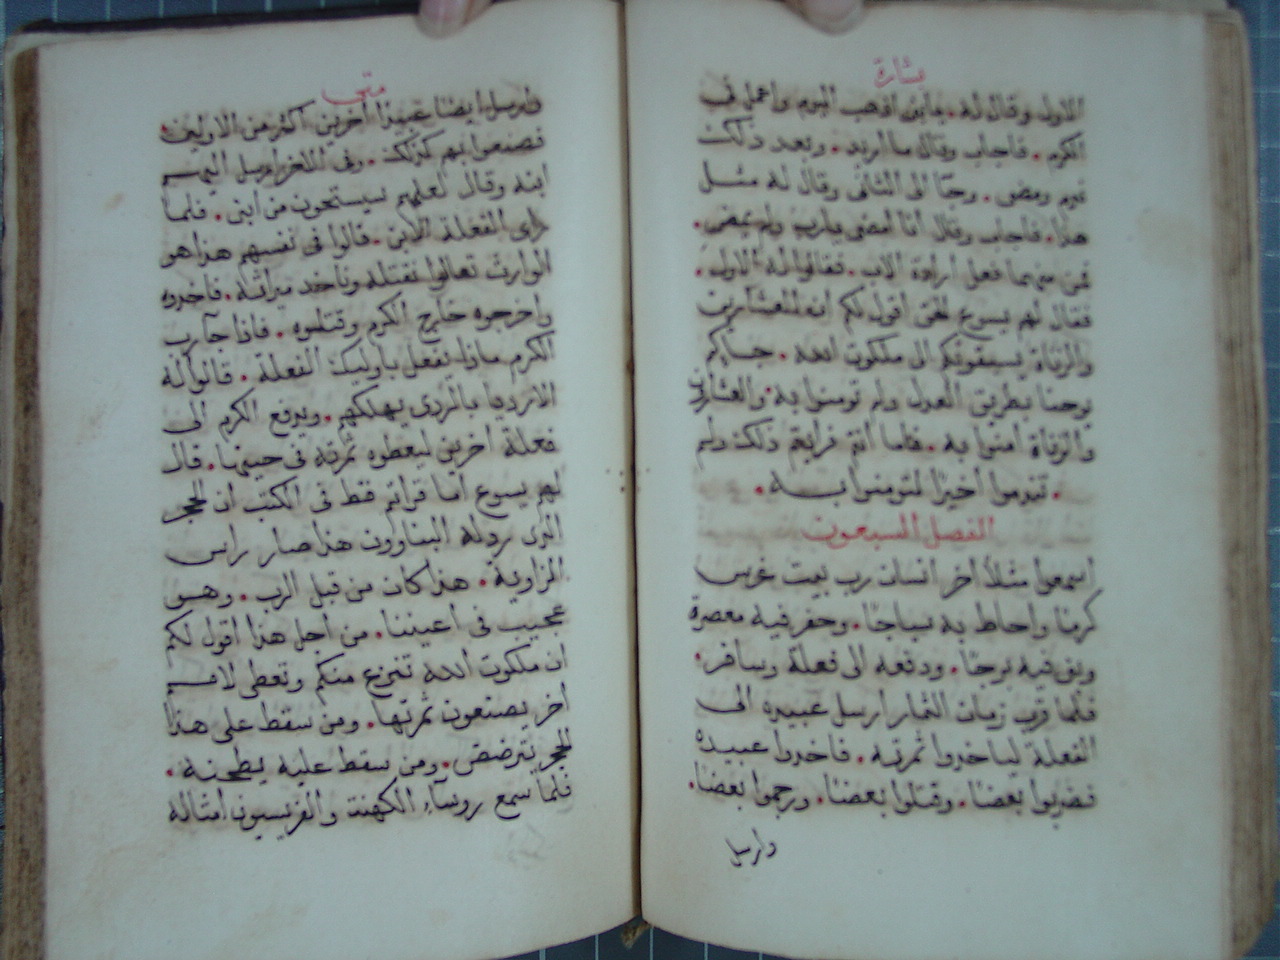 بشارة
الاول وقال له . يابني اذهب اليوم واعمل في
الكرم . فاجاب وقال ما اريد . وبعد ذلك
ندم ومضى . وجا الى الثاني وقال له مثل
هذا . فاجاب وقال انا امضي يارب ولم يمض .
فمن منهما فعل ارادة الاب . فقالوا له الاول .
فقال لهم يسوع الحق اقول لكم ان العشارين
والزناة يسبقونكم الى ملكوت الله . جاكم
يوحنا بطريق العدل ولم تومنوا به . والعشارين
والزناة امنوا به . فاما انتم فرايتم ذلك ولم
. تندموا اخيرا لتومنوا به .
الفصل السبعون
اسمعوا مثلا اخر انسان رب بيت غرس
كرما واحاط به سياجا . وحفر فيه معصرة
وبنى فيه برجا . ودفعه الى فعلة وسافر .
فلما قرب زمان الثمار ارسل عبيده الى
الفعلة لياخدوا ثمرته . فاخدوا عبيده
فضربوا بعضا . وقتلوا بعضا . ورجموا بعضا .
وارسل
متى
وارسل ايضا عبيدا اخرين اكثر من الاولين .
فصنعوا بهم كذلك . وفي الاخر ارسل اليهم
ابنه وقال لعلهم سيستحون من ابني . فلما
راى الفعلة الابن . قالوا في نفسهم هذا هو
الوارث تعالوا نقتله وناخد ميراثه . فاخدوه
واخرجوه خارج الكرم وقتلوه . فاذا جا رب
الكرم ماذا يفعل باوليك الفعلة . قالوا له
الارديا بالردى يهلكهم . ويدفع الكرم الى
فعلة اخرين ليعطوه ثمرته في حينها . قال
لهم يسوع اما قراتم قط في الكتب ان الحجر
الذي رذله البناوون هذا صار راس
الزاوية . هذا كان من قبل الرب . وهو
عجيب في اعيننا . من اجل هذا اقول لكم
ان ملكوت الله تنزع منكم وتعطى لامم
اخر يصنعون ثمرتها . ومن سقط على هذا
الحجر يترضض . ومن سقط عليه يطحنه .
فلما سمع روساء الكهنة والفريسيون امثاله